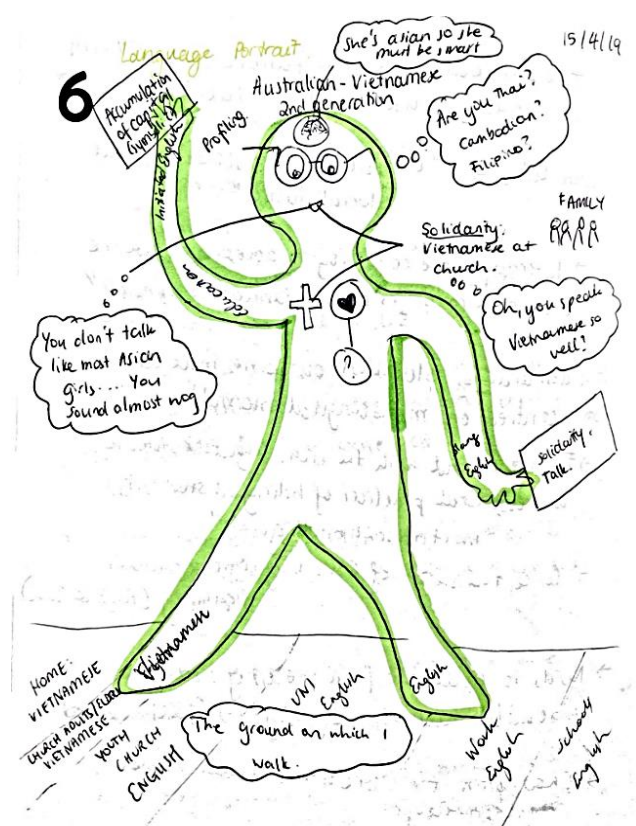 Language Portrait
15/4/19
6
She's asian so she
must be smart
Australian-Vietnamese
2nd generation
Accumulation
of capital
Profiling
Are you Thai?
Cambodian?
Filipino?
English
Education
Solidarity:
Vietnamese at
church.
FAMILY
Oh, you speak
Vietnamese so
well?
You don't talk
like most Asian
girls... You
sound almost wog
?
Slang
English
Solidarity.
Talk.
Vietnamese
English
HOME:
VIETNAMESE
CHURCH ADULTS/ELDERS
VIETNAMESE
YOUTH
CHURCH
ENGLISH
UNI
English
The ground on which I
walk.
Work
English
Schools
English